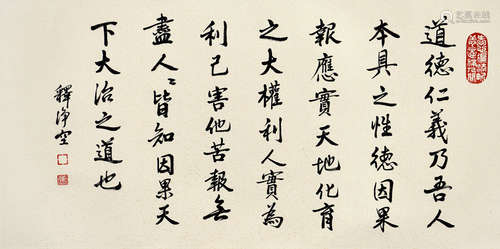 道德仁義乃吾人
本具之性德因果
報應實天地化育
之大權利人實為
利己害他苦報無
盡人〻皆知因果天
下大治之道也
釋淨空